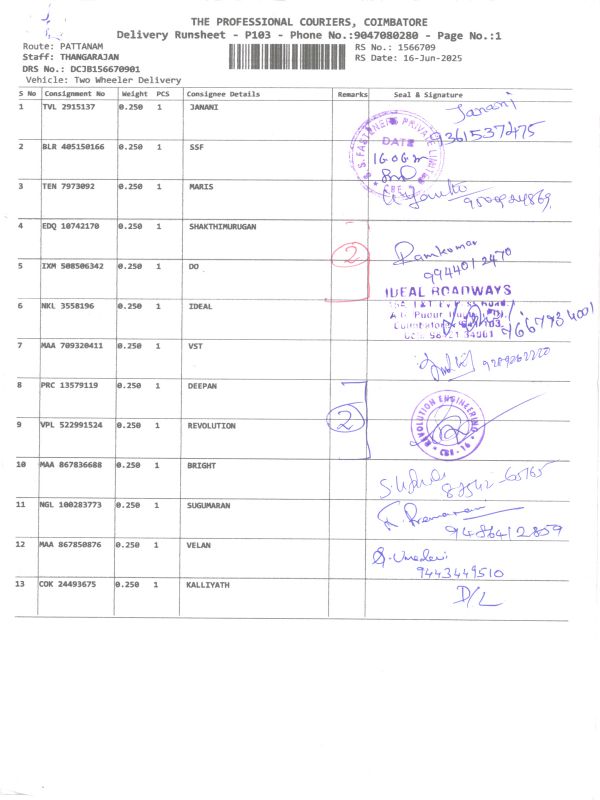 THE PROFESSIONAL COURIERS, COIMBATORE
Delivery Runsheet - P103 - Phone No.:9047080280 - Page No.:1
Route: PATTANAM
Staff: THANGARAJAN
DRS No.: DCJB156670901
Vehicle: Two Wheeler Delivery
RS No.: 1566709
RS Date: 16-Jun-2025
S No Consignment No Weight PCS Consignee Details Remarks Seal & Signature
1 TVL 2915137 0.250 1 JANANI Janani
9361537475
2 BLR 405150166 0.250 1 SSF
S.S. FASTENERS PRIVATE LIMITED
DATE
CBE
3 TEN 7973092 0.250 1 MARIS
4 EDQ 10742170 0.250 1 SHAKTHIMURUGAN
2
Ramkumar
9944012470
5 IXM 508506342 0.250 1 DO
6 NKL 3558196 0.250 1 IDEAL
IDEAL ROADWAYS
7 MAA 709320411 0.250 1 VST
8 PRC 13579119 0.250 1 DEEPAN
2
9 VPL 522991524 0.250 1 REVOLUTION
REVOLUTION ENGINEERING
CBE-16
10 MAA 867836688 0.250 1 BRIGHT
87542-65165
11 NGL 100283773 0.250 1 SUGUMARAN
9486412859
12 MAA 867850876 0.250 1 VELAN
S. Umadevi
9443449510
13 COK 24493675 0.250 1 KALLIYATH
D/L